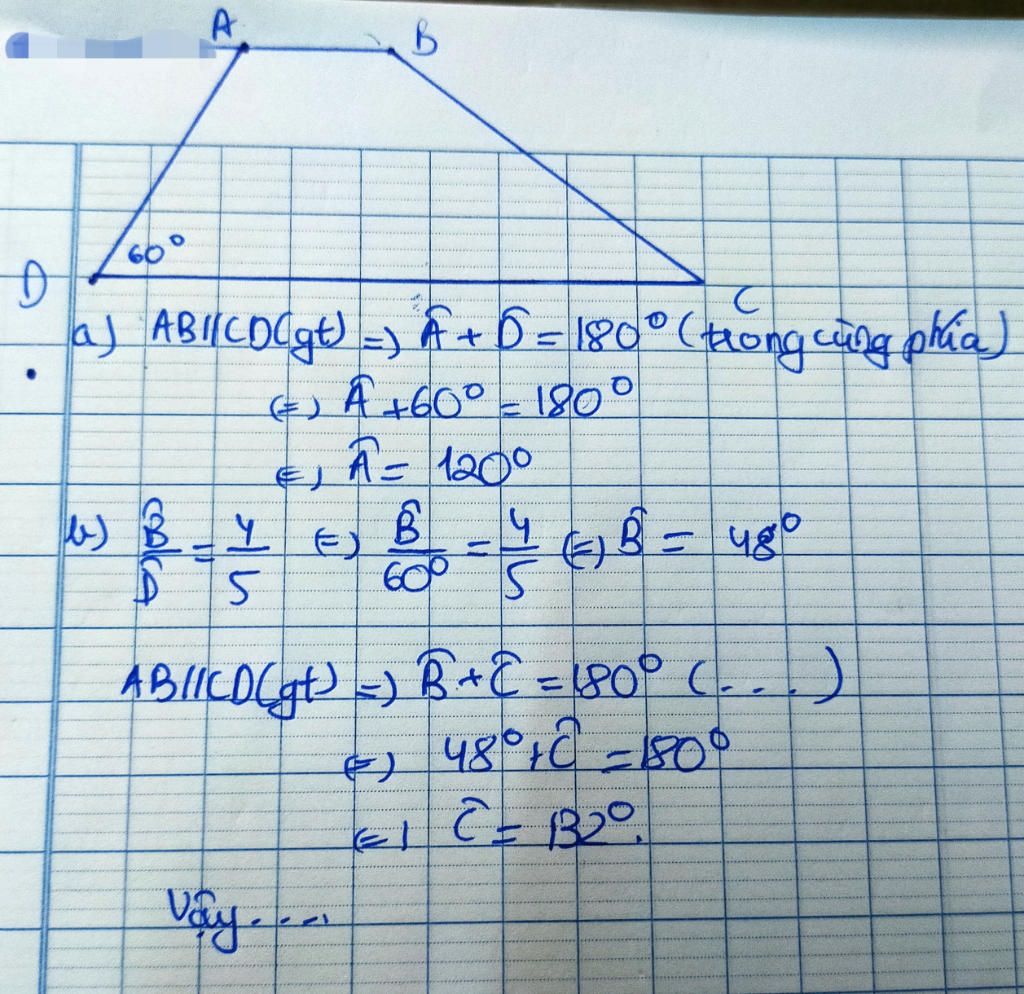 A B
60°
D C
a) AB//CD(gt) => Â + D̂ = 180° (trong cùng phía)
(=) Â + 60° = 180°
(=) Â = 120°
b) B̂/D̂ = 4/5 (=) B̂/60° = 4/5 (=) B̂ = 48°
AB//CD(gt) => B̂ + Ĉ = 180° (...)
(=) 48° + Ĉ = 180°
(=) Ĉ = 132°.
Vậy....